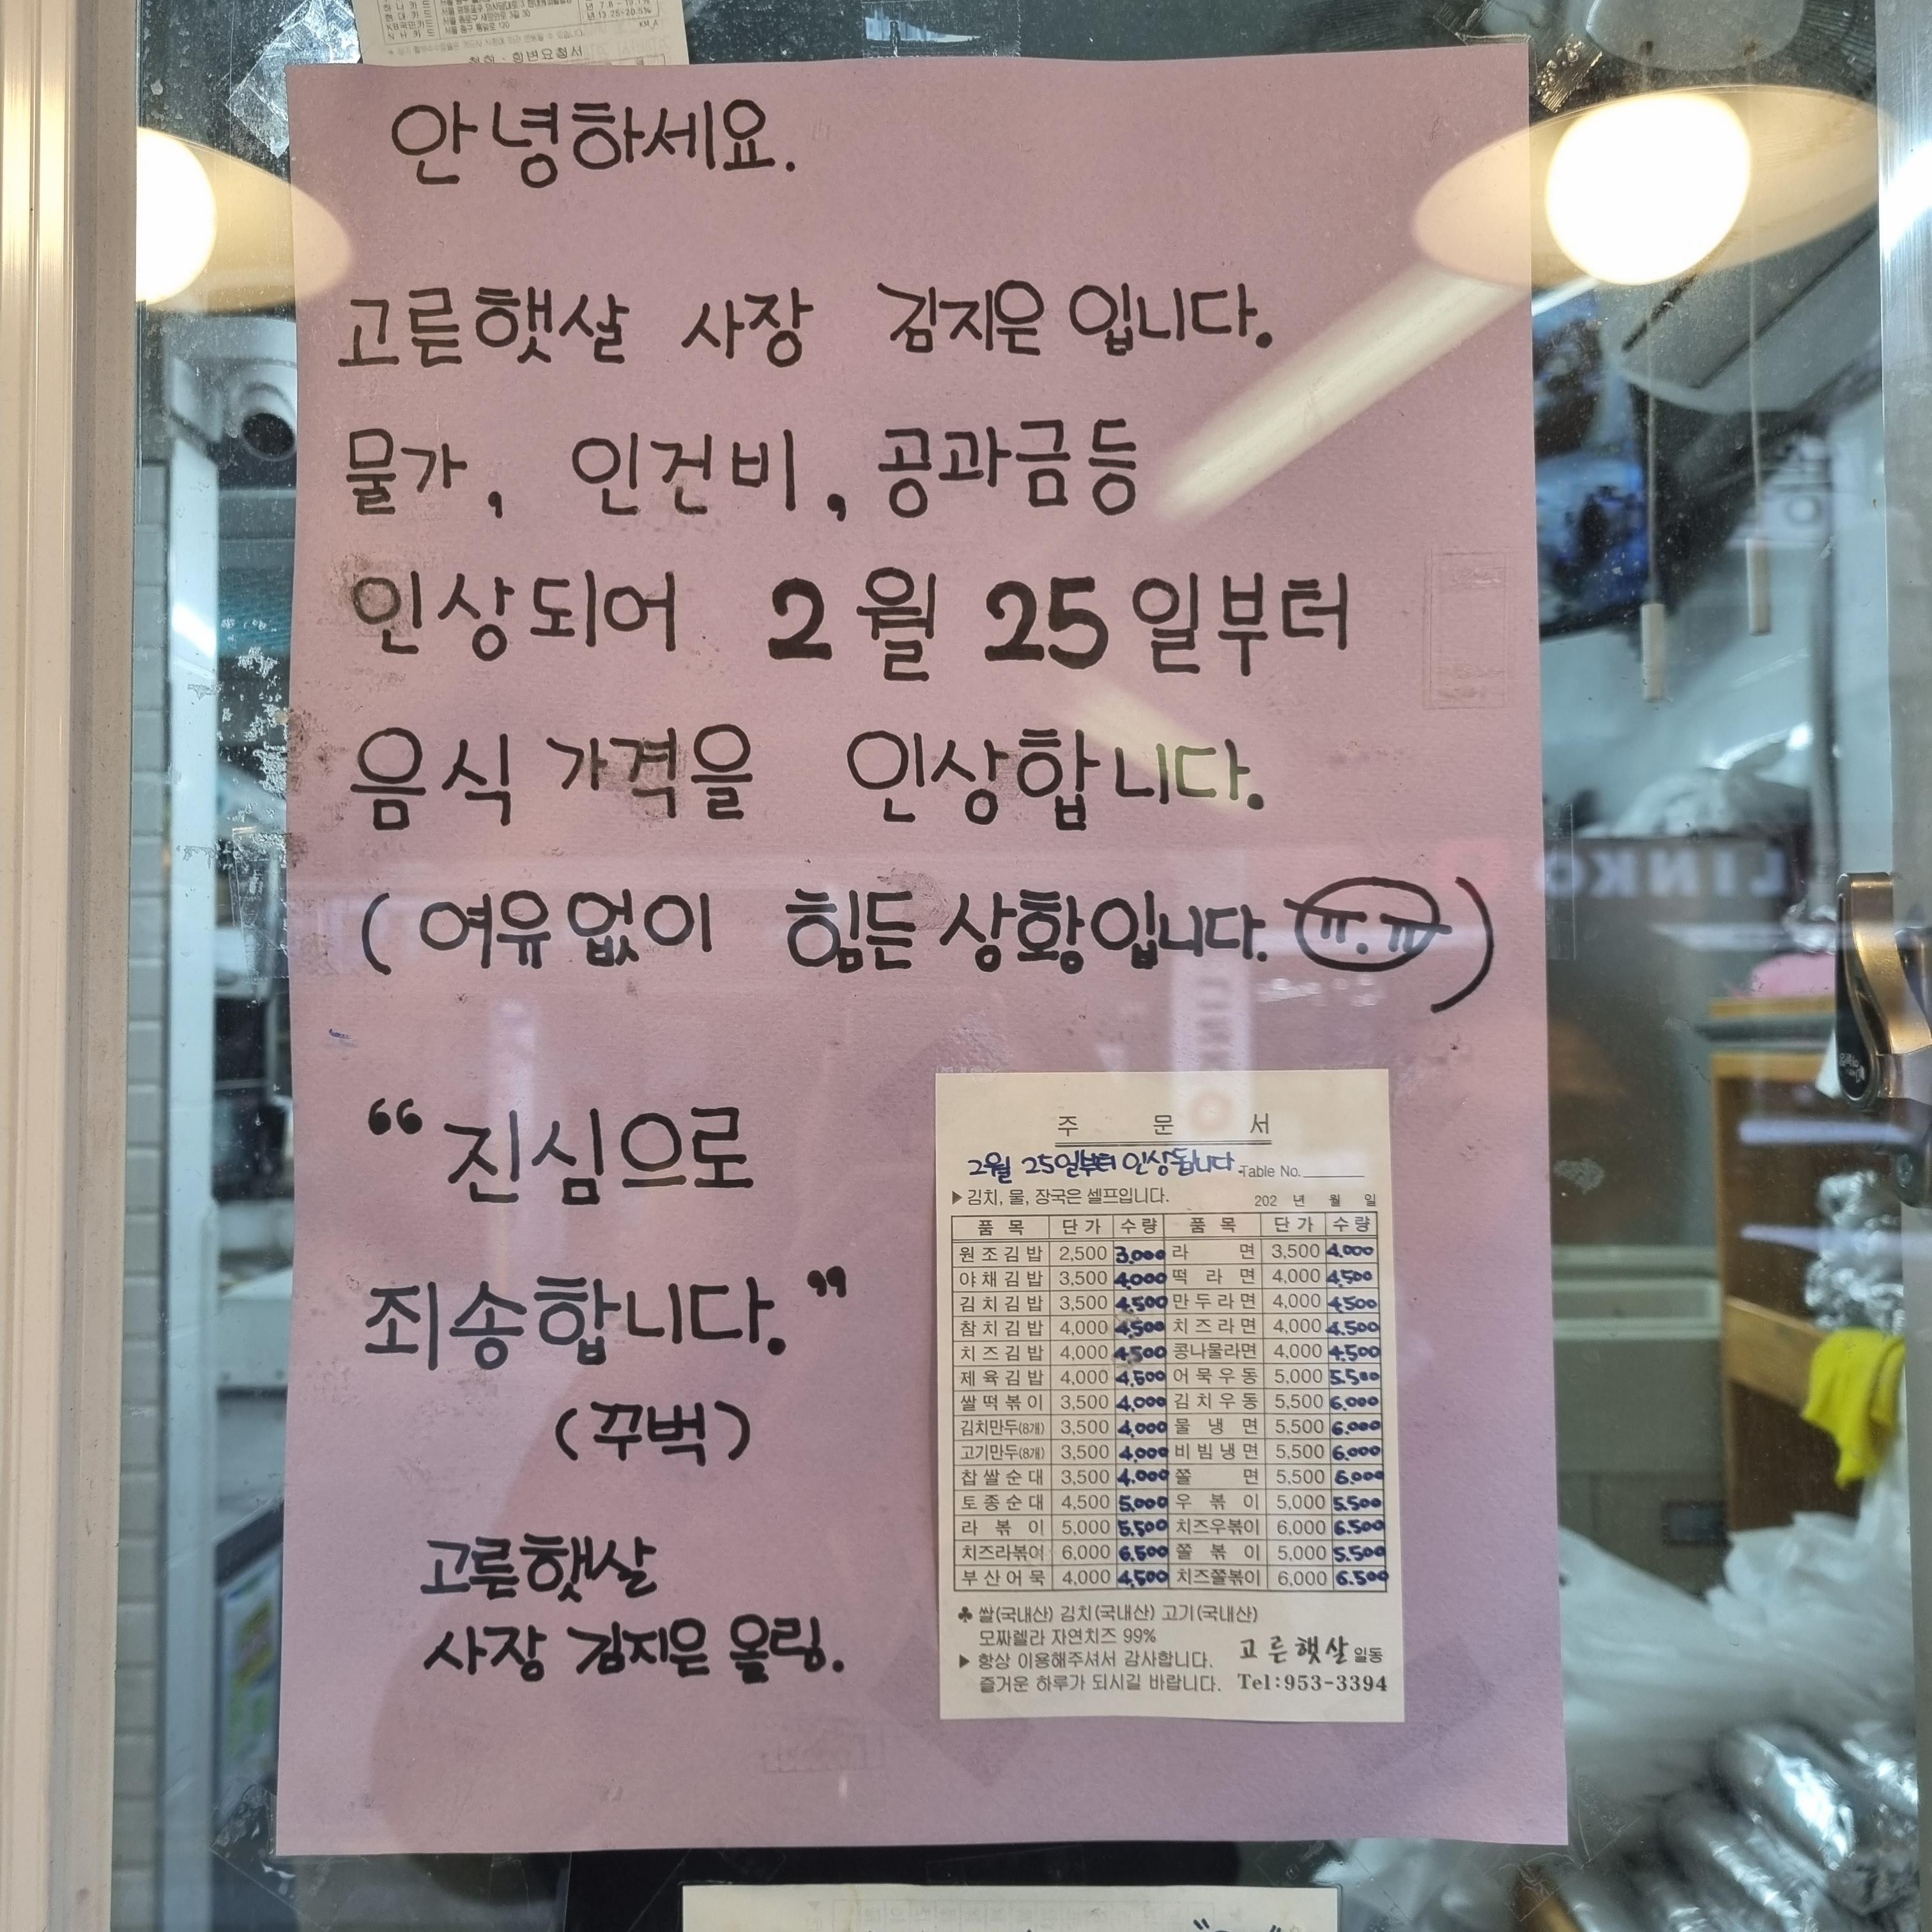 안녕하세요.
고른햇살 사장 김지은입니다.
물가, 인건비, 공과금등
인상되어 2월 25일부터
음식 가격을 인상합니다.
(여유없이 힘든 상황입니다. ㅠ.ㅠ)
“진심으로
죄송합니다.”
(꾸벅)
고른햇살
사장 김지은 올림.
주 문 서
2월 25일부터 인상됩니다. Table No.
▶김치, 물, 장국은 셀프입니다. 202 년 월 일
품 목 단 가 수 량 품 목 단 가 수 량
원조김밥 2,500 3,000 라 면 3,500 4,000
야채김밥 3,500 4,000 떡 라 면 4,000 4,500
김치김밥 3,500 4,500 만두라면 4,000 4,500
참치김밥 4,000 4,500 치즈라면 4,000 4,500
치즈김밥 4,000 4,500 콩나물라면 4,000 4,500
제육김밥 4,000 4,500 어묵우동 5,000 5,500
쌀떡볶이 3,500 4,000 김치우동 5,500 6,000
김치만두(8개) 3,500 4,000 물 냉 면 5,500 6,000
고기만두(8개) 3,500 4,000 비빔냉면 5,500 6,000
찹쌀순대 3,500 4,000 쫄 면 5,500 6,000
토종순대 4,500 5,000 우 볶 이 5,000 5,500
라 볶 이 5,000 5,500 치즈우볶이 6,000 6,500
치즈라볶이 6,000 6,500 쫄 볶 이 5,000 5,500
부산어묵 4,000 4,500 치즈쫄볶이 6,000 6,500
♣ 쌀(국내산) 김치(국내산) 고기(국내산)
모짜렐라 자연치즈 99%
▶ 항상 이용해주셔서 감사합니다. 고른햇살 일동
즐거운 하루가 되시길 바랍니다. Tel:953-3394